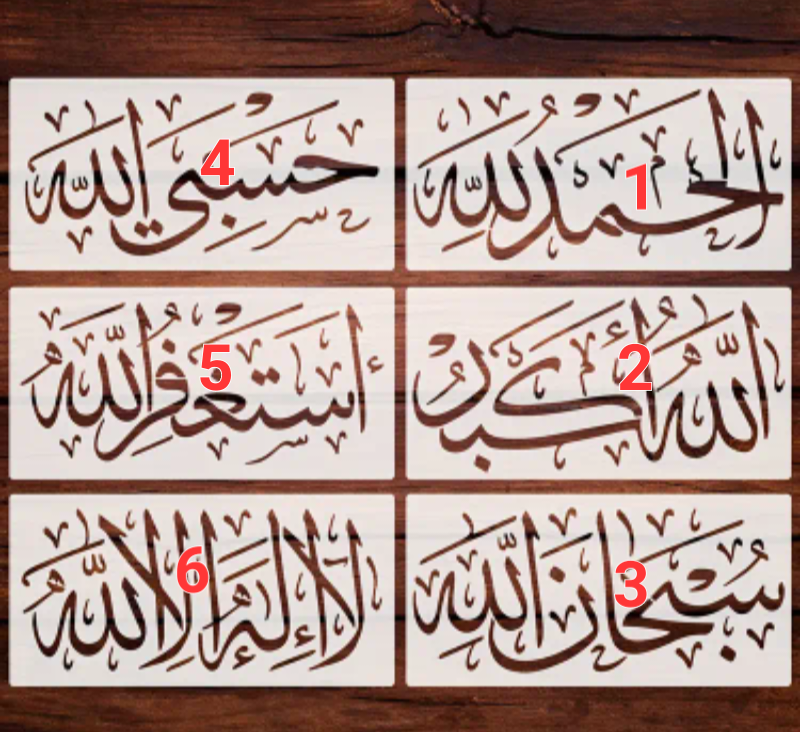 1
الحمد لله
2
الله أكبر
3
سبحان الله
4
حسبي الله
5
أستغفر الله
6
لا إله إلا الله